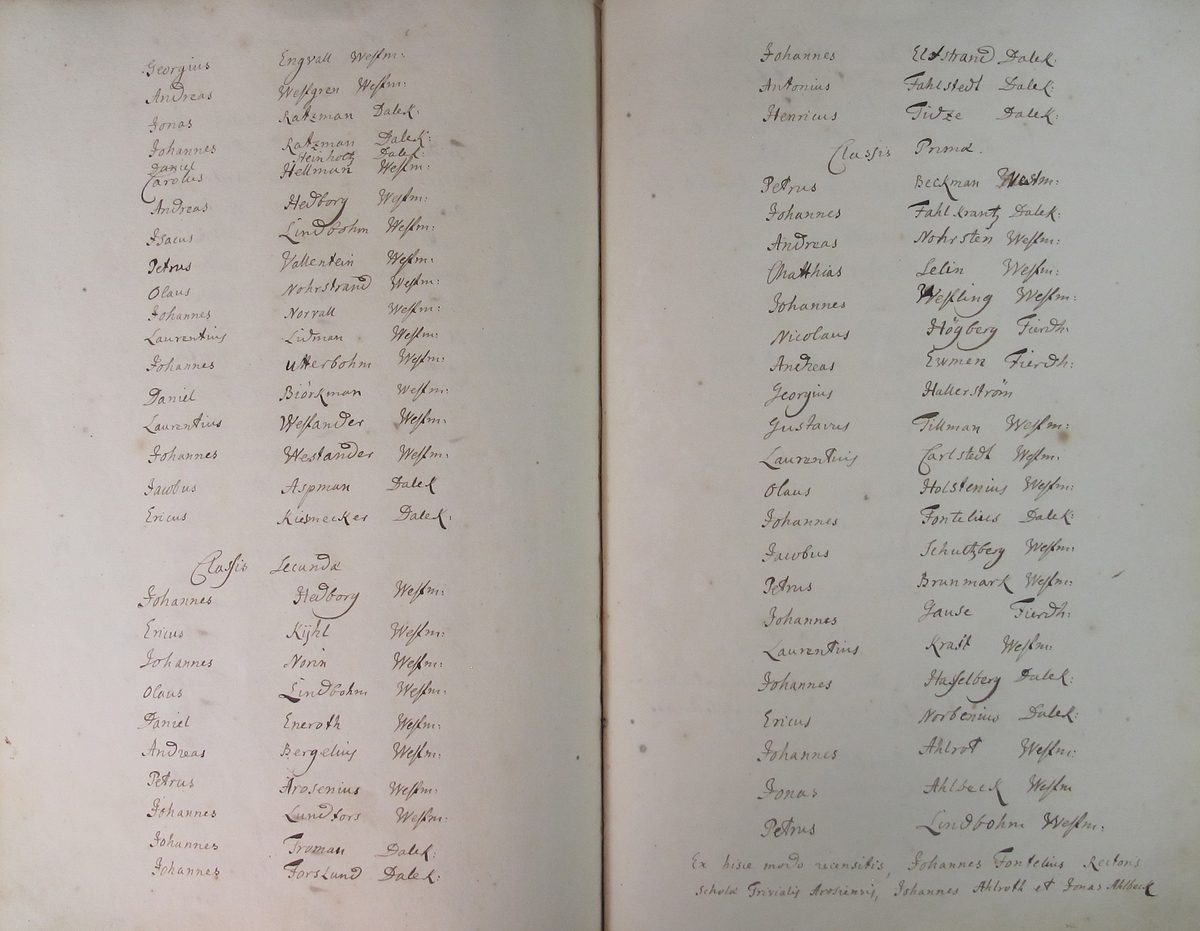 Georgius Engvall Westm:
Andreas Westgren Westm:
Jonas Ratzman Dalek:
Johannes Ratzman Dalek:
Daniel Steinholtz Dalek:
Carolus Hellman Westm:
Andreas Hedborg Westm:
Isacus Lindbohm Westm:
Petrus Vallentein Westm:
Olaus Nohrstrand Westm:
Johannes Norvall Westm:
Laurentius Lidman Westm:
Johannes Utterbohm Westm:
Daniel Biörkman Westm:
Laurentius Westander Westm:
Johannes Westander Westm:
Jacobus Aspman Dalek
Ericus Kiesmecker Dalek:
Classis Secunda
Johannes Hedborg Westm:
Ericus Kijhl Westm:
Johannes Norin Westm:
Olaus Lindbohm Westm:
Daniel Eneroth Westm:
Andreas Bergelius Westm:
Petrus Arosenius Westm:
Johannes Lundfors Westm:
Johannes Troman Dalek:
Johannes Forslund Dalek:
Johannes Elfstrand Dalek:
Antonius Fahlstedt Dalek:
Henricus Tidze Dalek:
Classis Prima.
Petrus Beckman Westm:
Johannes Fahlkrantz Dalek:
Andreas Nohrsten Westm:
Matthias Selin Westm:
Johannes Westling Westm:
Nicolaus Högberg Fierdh:
Andreas Ewmen Fierdh:
Georgius Hallerström
Gustavus Tillman Westm:
Laurentius Carlstedt Westm:
Olaus Holstenius Westm:
Johannes Fontelius Dalek:
Jacobus Schultzberg Westm:
Petrus Brunmark Westm:
Johannes Gause Fierdh:
Laurentius Kraft Westm:
Johannes Hasselberg Dalek:
Ericus Norbenius Dalek:
Johannes Ahlrot Westm:
Jonas Ahlbeck Westm
Petrus Lindbohm Westm:
Ex hisce modo recensitis, Johannes Fontelius Rectoris
Scholæ Trivialis Arosiensis, Johannes Ahlroth et Jonas Ahlbeck